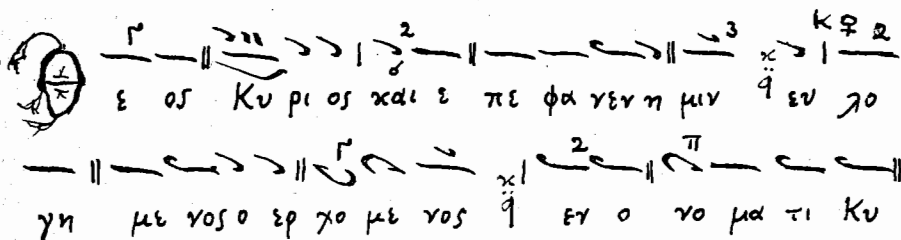 Θ ε ος Κυ ρι ος και ε πε φα νεν η μιν ευ λο
γη με νος ο ερ χο με νος εν ο νο μα τι Κυ